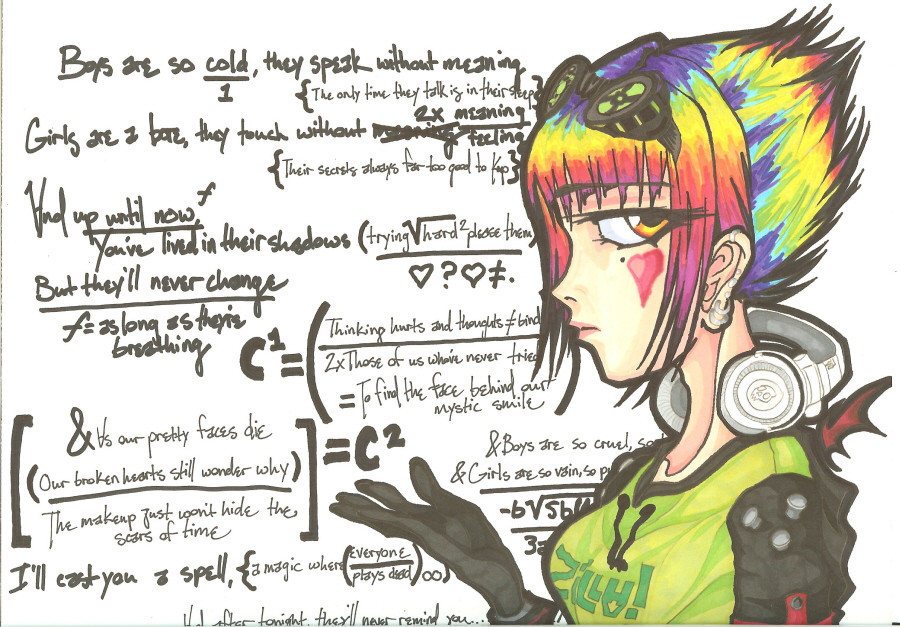 Boys are so cold, they speak without meaning
1
{The only time they talk is in their sleep}
Girls are a bore, they touch without meaning 2x meaning
feeling
{Their secrets always far too good to kep}
And up until now, f
You've lived in their shadows (trying √hard² please them)
♡?♡≠.
But they'll never change
f = as long as they're
breathing
C¹ = (Thinking hurts and thoughts ≠ bind
2x Those of us who've never tried
= To find the face behind our
mystic smile)
[& As our pretty faces die
(Our broken hearts still wonder why)
The makeup just won't hide the
scars of time] = C²
& Boys are so cruel, so
& Girls are so vain, so
-6√56
3
I'll cast you a spell, {a magic where (everyone
plays dead) ∞}
And after tonight, they'll never remind you...
ZILLA!